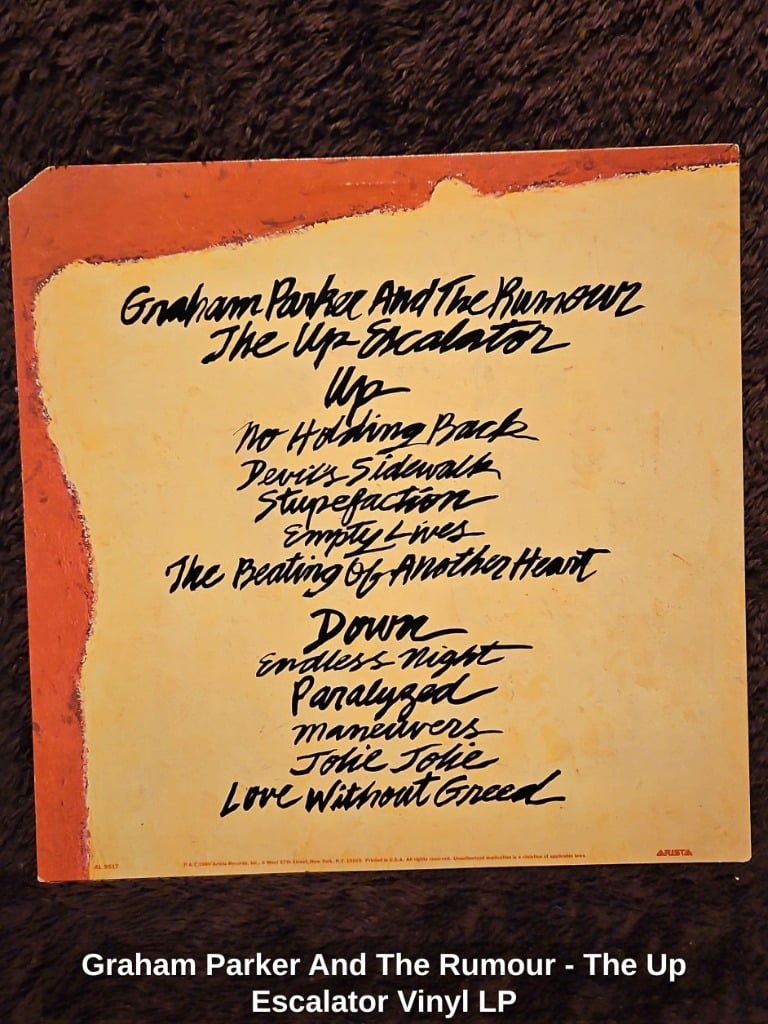 Graham Parker And The Rumour
The Up Escalator
Up
No Holding Back
Devil's Sidewalk
Stupefaction
Empty Lives
The Beating Of Another Heart
Down
Endless Night
Paralyzed
Maneuvers
Jolie Jolie
Love Without Greed
AL 9517
P & C 1980 Arista Records, Inc., 6 West 57th Street, New York, N.Y. 10019. Printed in U.S.A. All rights reserved. Unauthorized duplication is a violation of applicable laws.
ARISTA
Graham Parker And The Rumour - The Up
Escalator Vinyl LP